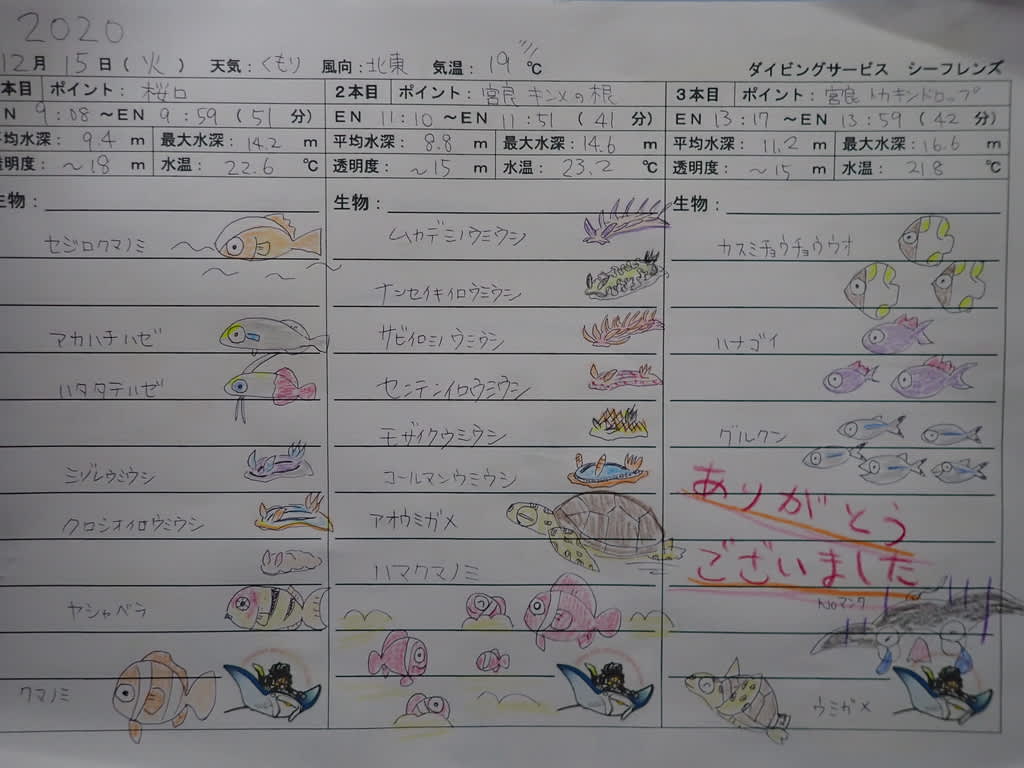 2020
12月 15日(火) 天気:くもり 風向:北東 気温:19℃
ダイビングサービス シーフレンズ
本目 ポイント: 桜口
N 9:08～EN 9:59 (51分)
平均水深: 9.4 m 最大水深: 14.2 m
透明度: ～18 m 水温: 22.6 ℃
生物:
セジロクマノミ
アカハチハゼ
ハタタテハゼ
ミゾレウミウシ
クロシオイロウミウシ
ヤシャベラ
クマノミ
2本目 ポイント: 宮良 キンメの根
EN 11:10 ～EN 11:51 (41分)
平均水深: 8.8 m 最大水深: 14.6 m
透明度: ～15 m 水温: 23.2 ℃
生物:
ムカデミノウミウシ
ナンセイキイロウミウシ
サビイロミノウミウシ
センテンイロウミウシ
モザイクウミウシ
コールマンウミウシ
アオウミガメ
ハマクマノミ
3本目 ポイント: 宮良 トカキンドロップ
EN 13:17 ～EN 13:59 (42分)
平均水深: 11.2 m 最大水深: 16.6 m
透明度: ～15 m 水温: 21.8 ℃
生物:
カスミチョウチョウウオ
ハナゴイ
グルクン
ありがとう
ございました
Noマンタ
ウミガメ